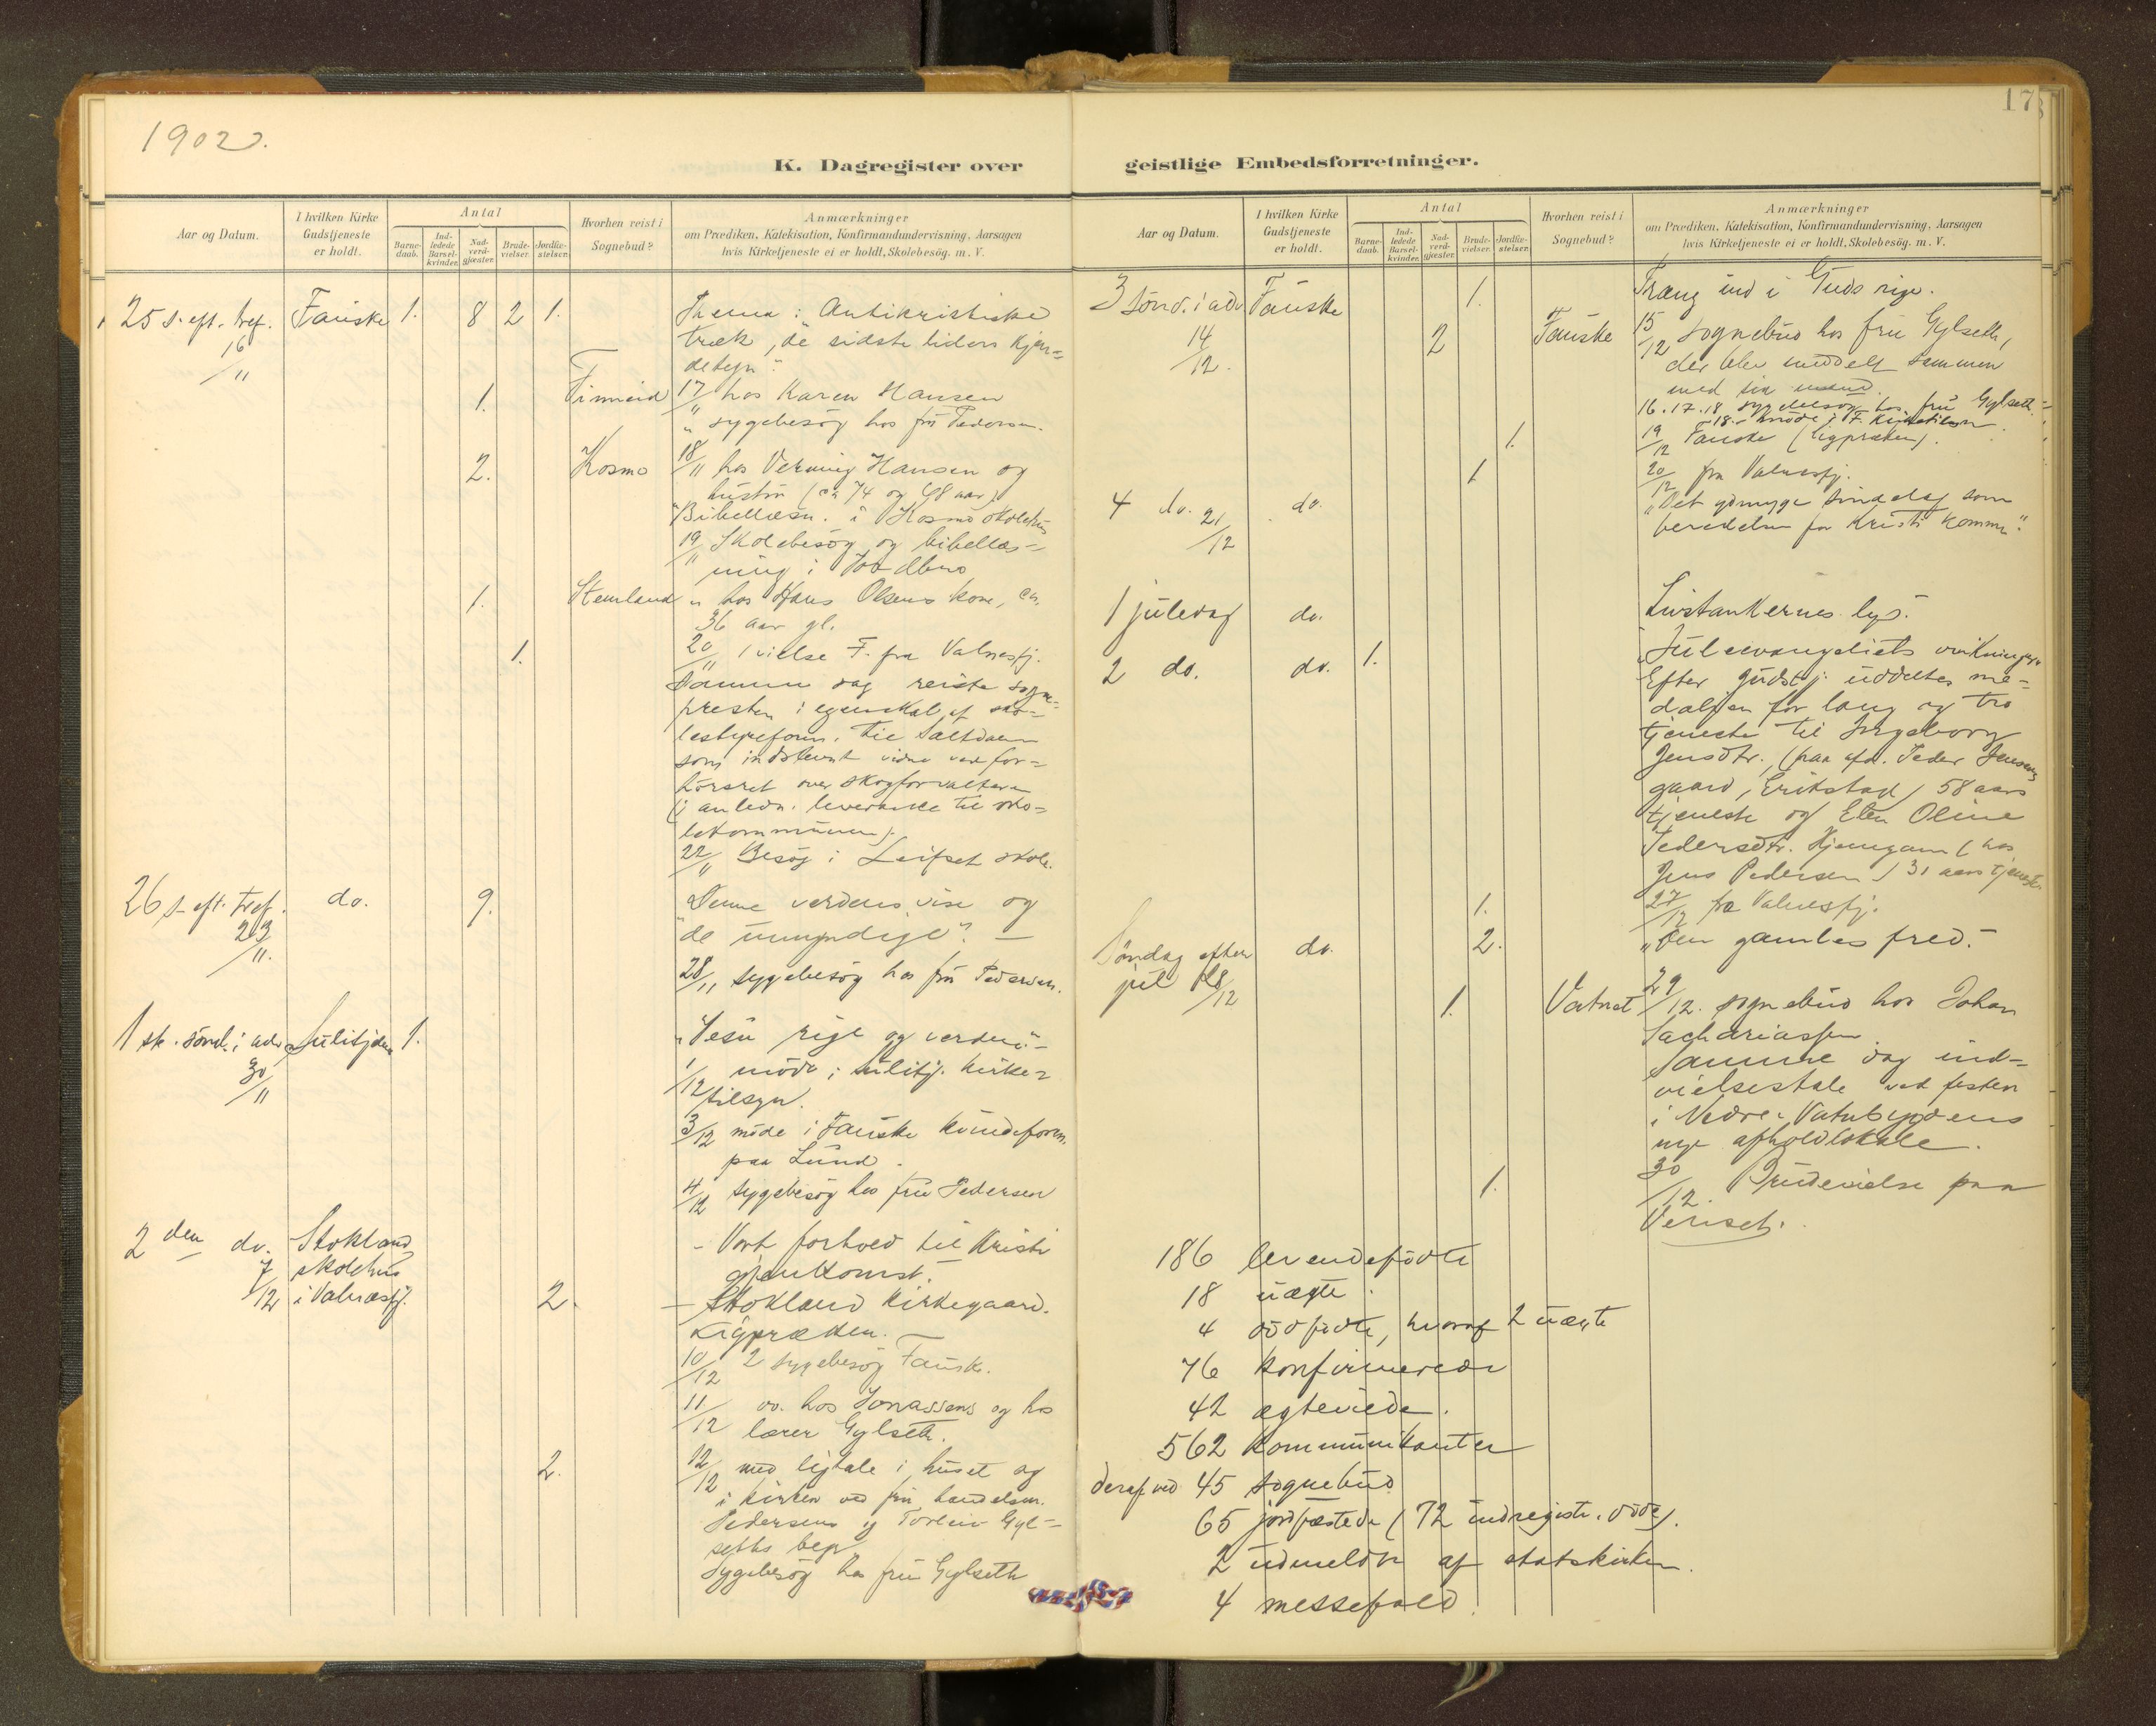 1902.
K. Dagregister over
Aar og Datum.
I hvilken Kirke Gudstjeneste er holdt.
Antal
Barne-daab.
Ind-ledede Barsel-kvinder.
Nad-verd-gjæster.
Brude-vielser.
Jordfæ-stelser.
Hvorhen reist i Sognebud?
Anmærkninger
om Prædiken, Katekisation, Konfirmandundervisning, Aarsagen
hvis Kirketjeneste ei er holdt, Skolebesøg. m. V.
25 s. eft. tref. Fauske 1. 8 2 1. Thema: Antikristiske
16/11 træk, "de sidste tiders kjen=
detegn".
1. Finneid 17/11 hos Karen Hansen
" sygebesøg hos fru Pedersen.
2. Kosmo 18/11 hos Verming Hansen og
hustru (ca 74 og 68 aar)
Bibellæsn. i Kosmo skolehus
19/11 Skolebesøg og bibellæs=
ning i
1. Stemland " hos Hans Olsens kone, ca.
36 aar gl.
1. 20/11 1 vielse F. fra Valnesfj.
Samme dag reiste sogne=
presten i egenskab af sko=
lestyreform. til Saltdalen
som indstevnt vidne ved for=
hørsret over skogforvalteren
(i anledn. leverance til sko=
lekommunen).
22/11 Besøg i Leifset skole.
26 s. eft. tref. do. 9. Denne verdens vise og
23/11. "de umyndige". —
28/11 sygebesøg hos fru Pedersen.
1 ste sönd. i adv. Sulitjelma 1. "Jesu rige og verden.—
30/11 1/12 møde i Sulitj. kirke=
tilsyn.
3/12 møde i Fauske kvindeforen.
paa Lund.
4/12 sygebesøg hos fru Pedersen
2 den do. Stokland - Vort forhold til Kristi
7/12 skolehus gjenkomst.
i Valnæsfj. 2. — Stokland kirkegaard.
Ligpræken. —
10/12 2 sygebesøg Fauske.
11/12 do. hos Jonassens og hos
lærer Gylseth.
2. 12/12 med ligtale i huset og
i kirken ved fru handelsm.
Pedersens og Torleiv Gyl=
seths begr.
Sygebesøg hos fru Gylseth
173
geistlige Embedsforretninger.
Aar og Datum.
I hvilken Kirke Gudstjeneste er holdt.
Antal
Barne-daab.
Ind-ledede Barsel-kvinder.
Nad-verd-gjæster.
Brude-vielser.
Jordfæ-stelser.
Hvorhen reist i Sognebud?
Anmærkninger
om Prædiken, Katekisation, Konfirmandundervisning, Aarsagen
hvis Kirketjeneste ei er holdt, Skolebesøg. m. V.
3 sönd. i adv Fauske 1. Træng ind i Guds rige.
14/12. 2 Fauske 15/12 sognebud hos fru Gylseth,
der blev meddelt sammen
med sin mand.
16. 17. 18 sygebesøg hos fru Gylseth
18. møde i F.
1. 19/12 Fauske (ligpræken).
1 20/12 fra Valnesfj.
4 do. 21/12 do. "Det ydmyge sindelag som
beredelse for Kristi komme."
1 juledag do. Livstankernes lys.
2 do. do. 1. "Juleevangeliets virkninger"
Efter gudstj. uddeltes me=
daljen for lang og tro
tjeneste til Ingeborg
Jensdtr. (paa afd. Peder Jensens
gaard, Erikstad) 58 aars
tjeneste og Elen Oline
Pedersdtr. Hjemgam (hos
Jens Pedersen) 31 aars tjeneste
1. 27/12 fra Valnesfj.
Søndag efter do. 2. "Den gamles fred."
jul 28/12
1. Vatnet 29/12. sognebud hos Johan
Sachariassen.
Samme dag ind=
vielsestale ved festen
i Nedre Vatnbygdens
nye afholdslokale.
1. 30/12. Brudevielse paa
Veriset.
186 levendefødte
18 uægte.
4 dødfødte, hvoraf 2 uægte
76 konfirmerede
42 ægteviede.
562 kommunikanter
deraf ved 45 sognebud
65 jordfæstede (72 indregistr. døde).
2 udmeldte af statskirken.
4 messefald.